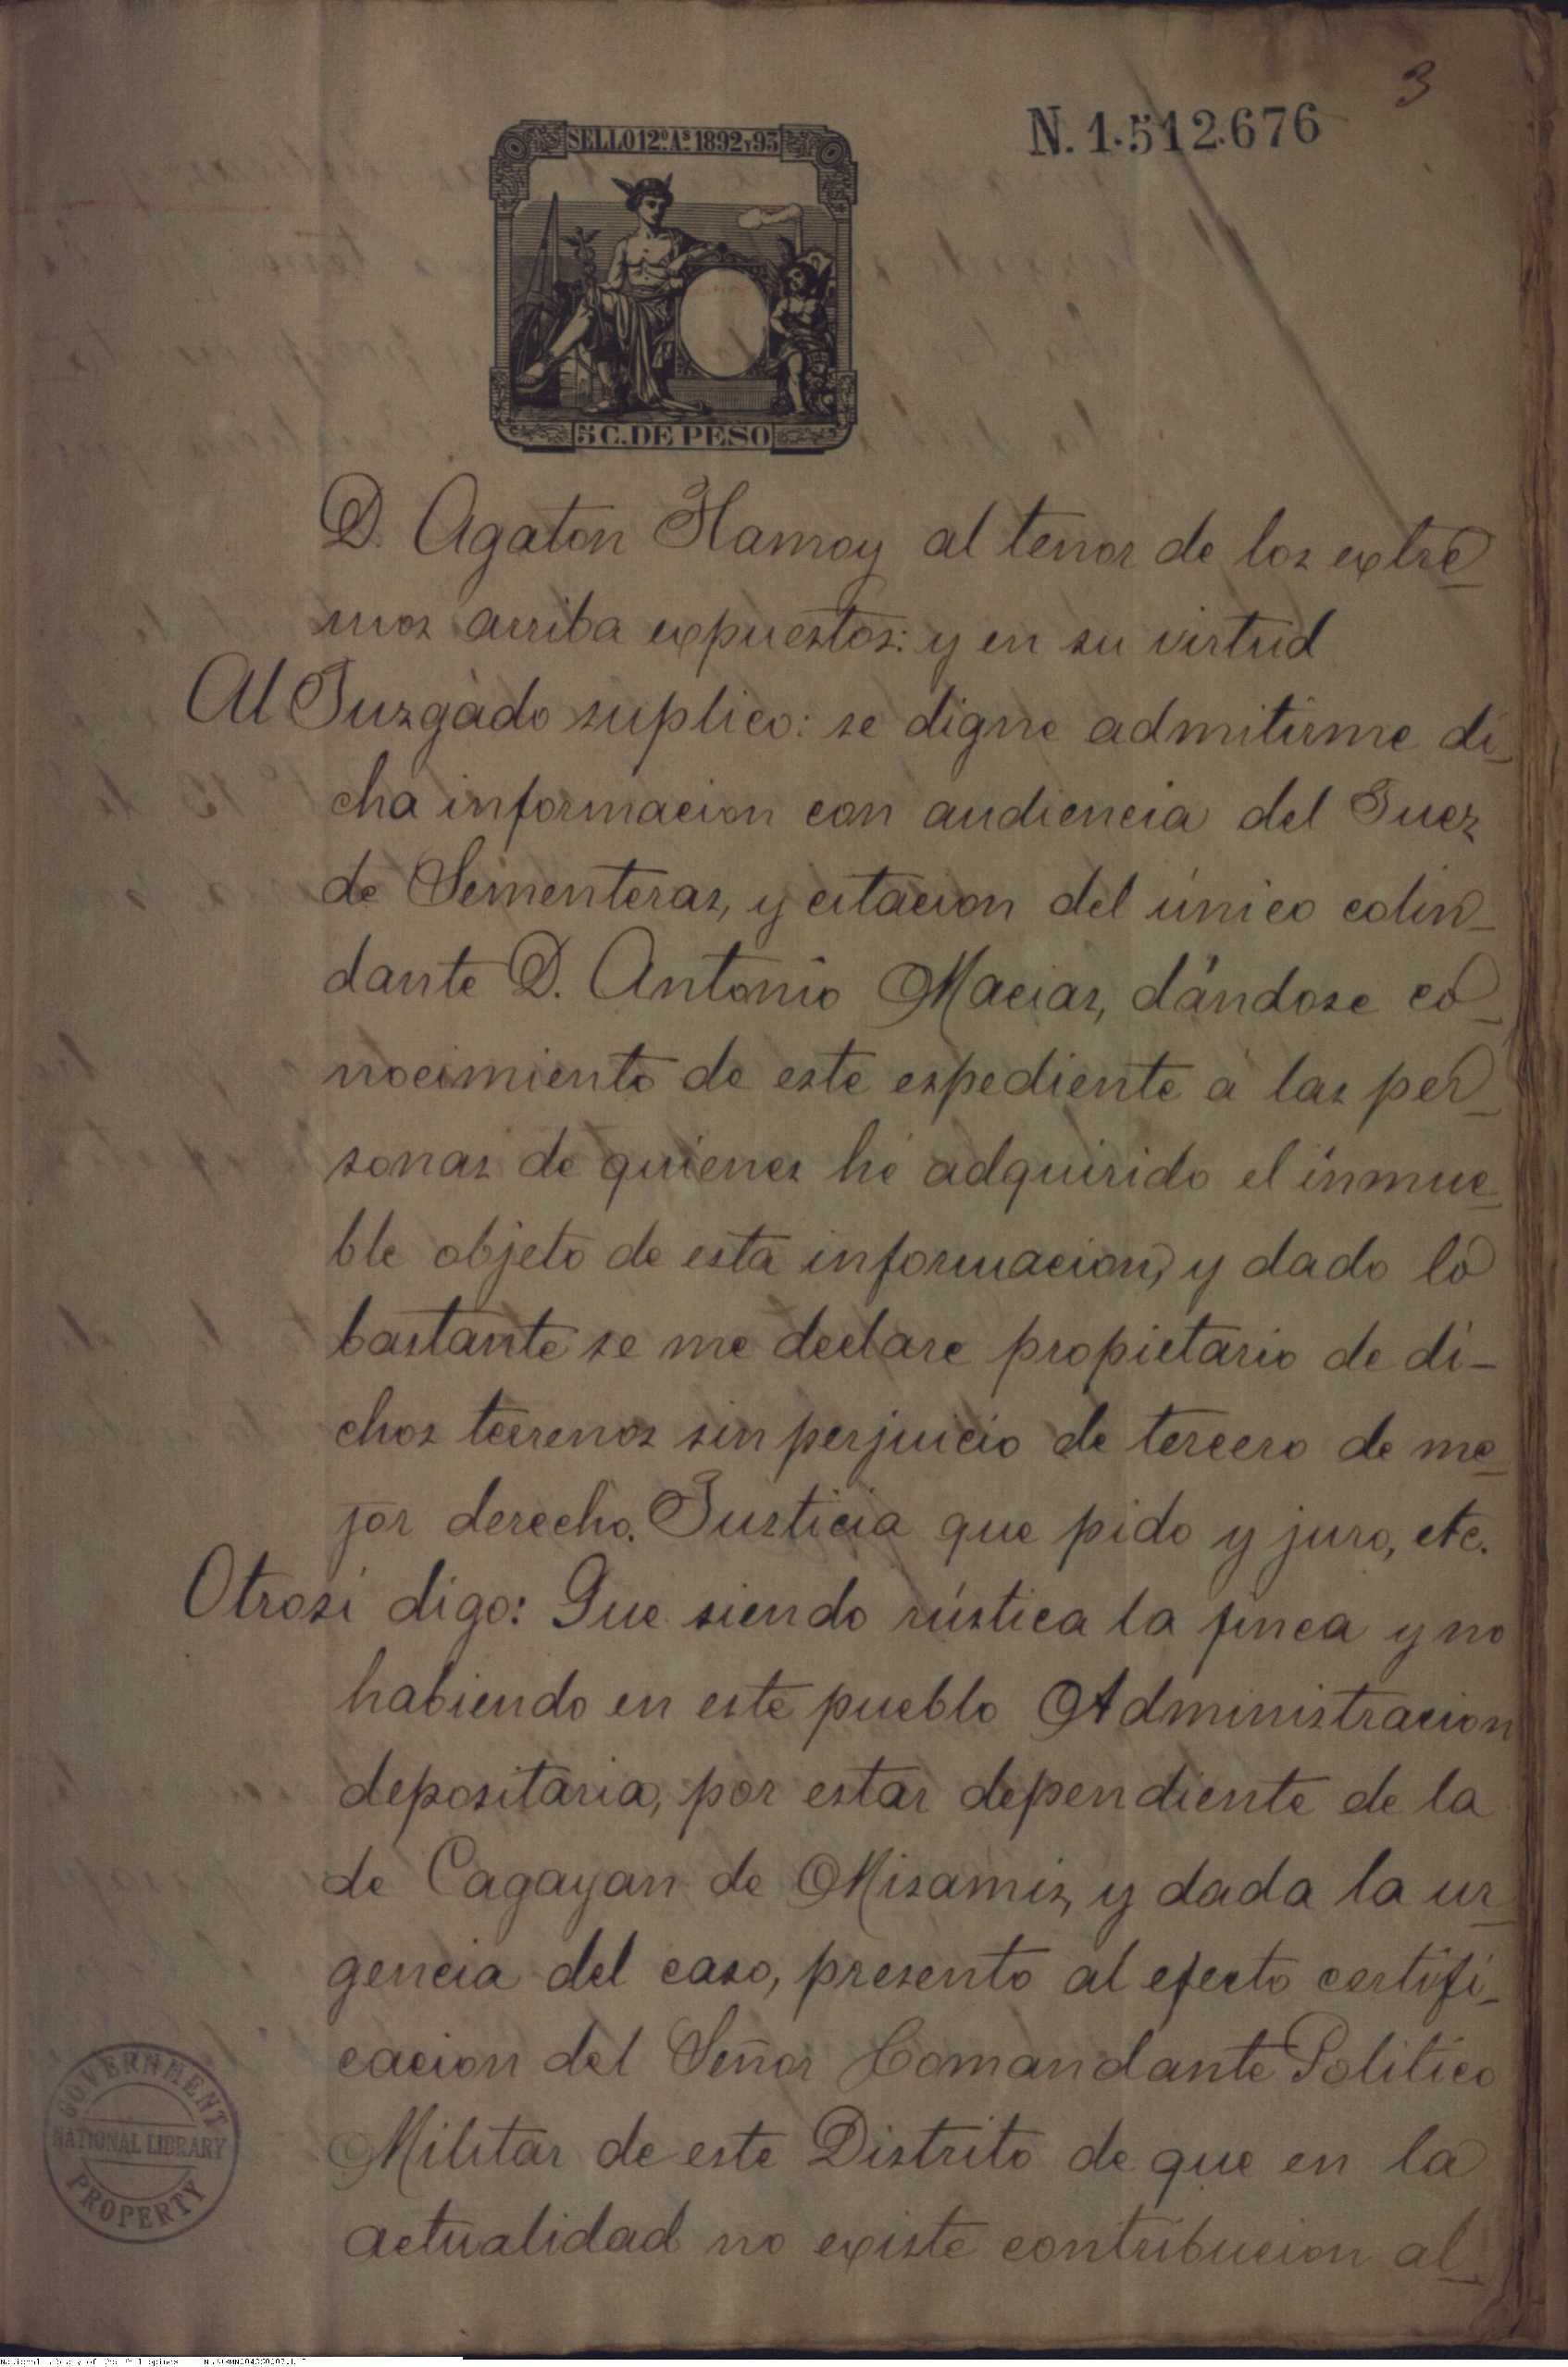 3
N. 1.512.676
SELLO 12º Aˢ 1892 y 93
5 C. DE PESO
D. Agaton Hamoy al tenor de los extre_
mos arriba expuestos: y en su virtud
Al Juzgado suplico: se digne admitirme di_
cha informacion con audiencia del Juez
de Sementeras, y citacion del único colin_
dante D. Antonio Macias, dándose co_
nocimiento de este espediente á las per_
sonas de quienes hé adquirido el inmue_
ble objeto de esta informacion, y dado lo
bastante se me declare propietario de di_
chos terrenos sin perjuicio de tercero de me_
jor derecho. Justicia que pido y juro, etc.
Otrosi digo: Que siendo rústica la finca y no
habiendo en este pueblo Administracion
depositaria, por estar dependiente de la
de Cagayan de Misamis, y dada la ur_
gencia del caso, presento al efecto certifi_
cacion del Señor Comandante Politico
Militar de este Distrito de que en la
actualidad no existe contribucion al_
GOVERNMENT
NATIONAL LIBRARY
PROPERTY